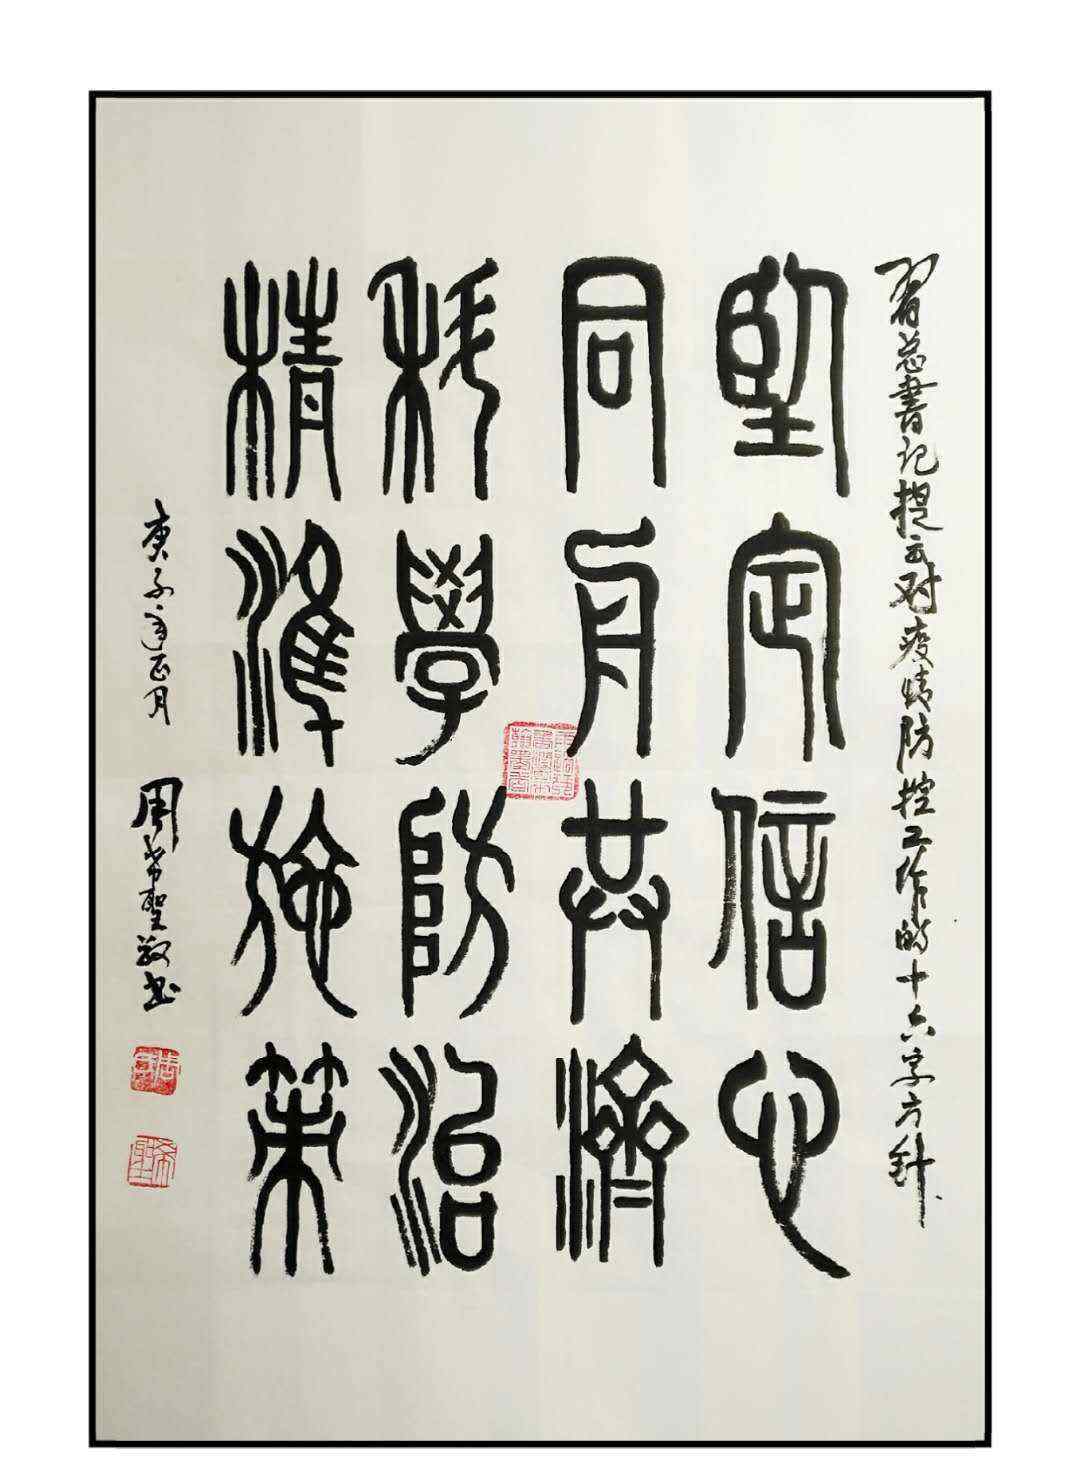 習总書记提出对疫情防控工作的十六字方针
堅定信心
同舟共濟
科學防治
精準施策
庚子年正月 周希聖敬书
希聖